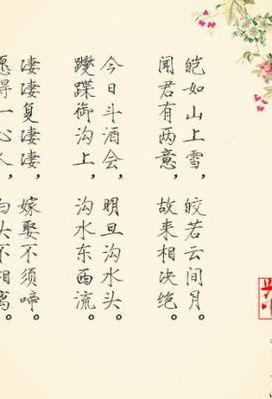 皑如山上雪，皎若云间月。
闻君有两意，故来相决绝。
今日斗酒会，明旦沟水头。
躞蹀御沟上，沟水东西流。
凄凄复凄凄，嫁娶不须啼。
愿得一心人，白头不相离。